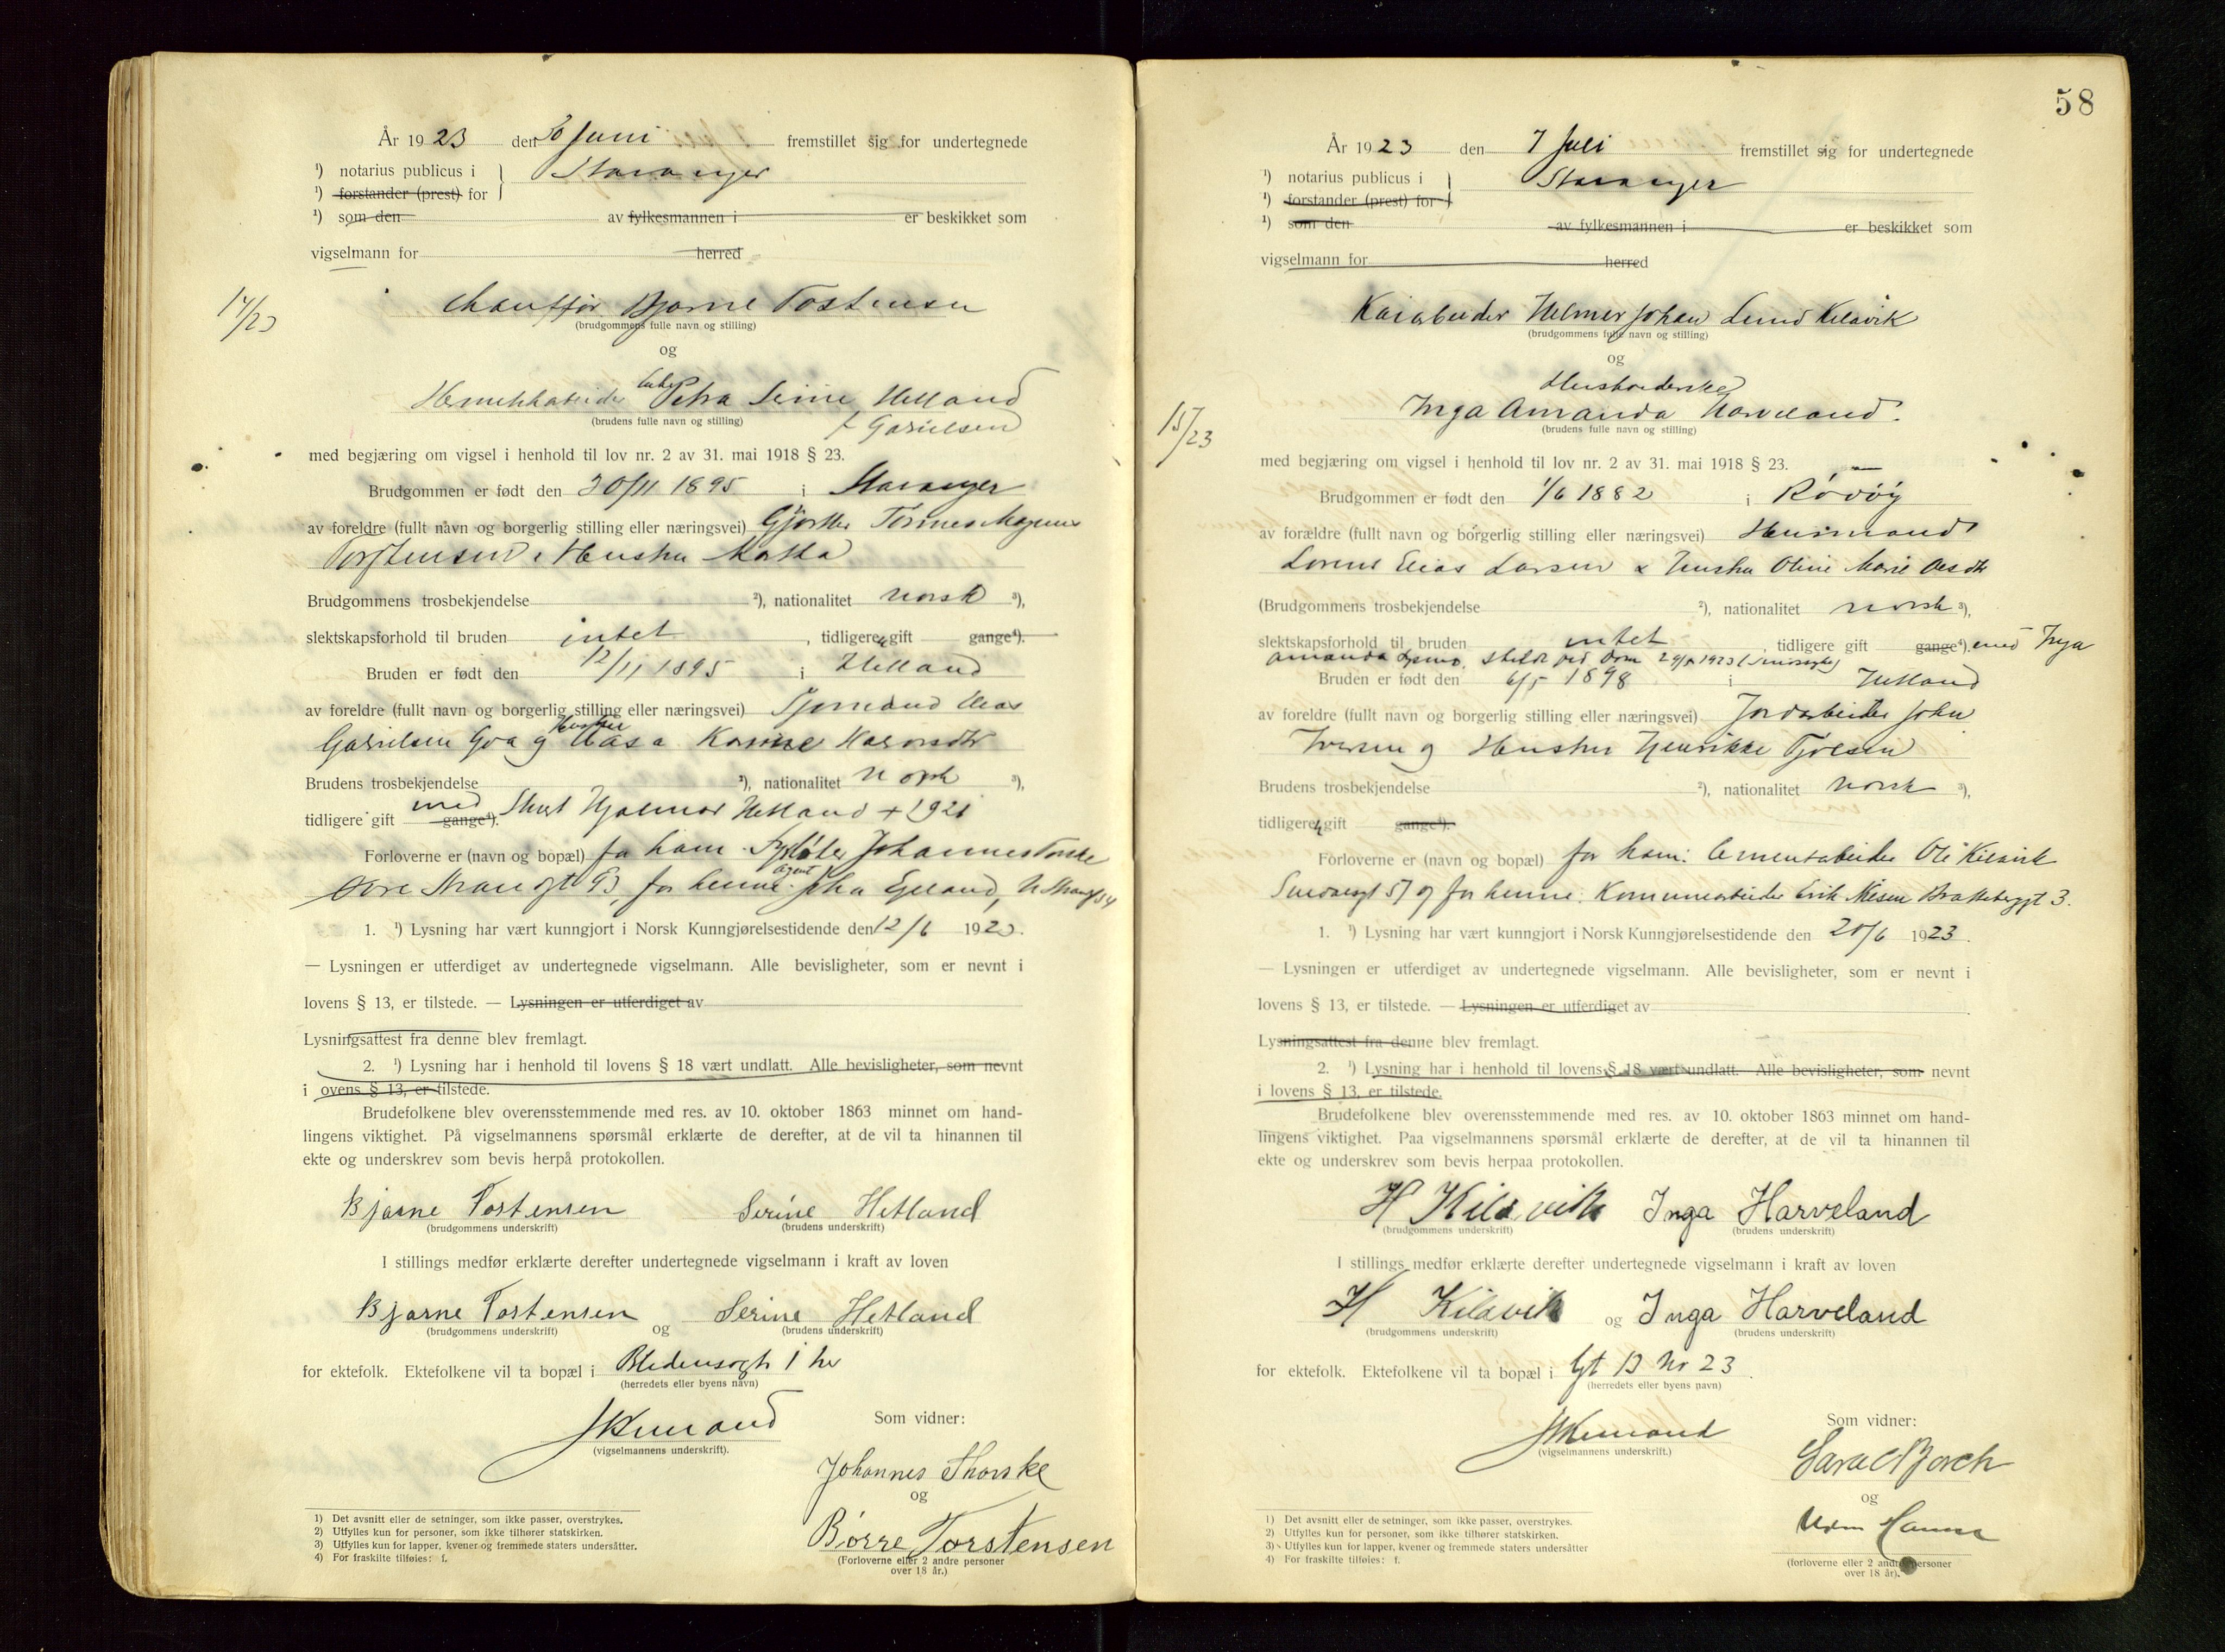 År 1923 den 30 Juni fremstillet sig for undertegnede
¹) notarius publicus i Stavanger
¹) forstander (prest) for
¹) som den av fylkesmannen i er beskikket som
vigselmann for herred
14/23
Chauffør Bjarne Tostensen
(brudgommens fulle navn og stilling)
og
Enke
Hermetikkarbeider Petra Serine Hetland
(brudens fulle navn og stilling)
f Gabrielsen
med begjæring om vigsel i henhold til lov nr. 2 av 31. mai 1918 § 23.
Brudgommen er født den 20/11 1895 i Stavanger
av foreldre (fullt navn og borgerlig stilling eller næringsvei) Gjørtler
Torstensen & Hustru
Brudgommens trosbekjendelse ²), nationalitet norsk ³),
slektskapsforhold til bruden intet, tidligere gift gange⁴).
Bruden er født den 12/11 1895 i Hetland
av foreldre (fullt navn og borgerlig stilling eller næringsvei)
Hustru
og
Brudens trosbekjendelse ²), nationalitet norsk ³),
tidligere gift med gange⁴). Hjalmar Hetland + 1921
Forloverne er (navn og bopæl) for ham Johannes Torske
agent
93, for henne Egeland,
1. ¹) Lysning har vært kunngjort i Norsk Kunngjørelsestidende den 12/6 1923.
— Lysningen er utferdiget av undertegnede vigselmann. Alle bevisligheter, som er nevnt i
lovens § 13, er tilstede. — Lysningen er utferdiget av
Lysningsattest fra denne blev fremlagt.
2. ¹) Lysning har i henhold til lovens § 18 vært undlatt. Alle bevisligheter, som nevnt
i ovens § 13, er tilstede.
Brudefolkene blev overensstemmende med res. av 10. oktober 1863 minnet om hand-
lingens viktighet. På vigselmannens spørsmål erklærte de derefter, at de vil ta hinannen til
ekte og underskrev som bevis herpå protokollen.
Bjarne Tostensen Serine Hetland
(brudgommens underskrift) (brudens underskrift)
I stillings medfør erklærte derefter undertegnede vigselmann i kraft av loven
Bjarne Tostensen og Serine Hetland
(brudgommens underskrift) (brudens underskrift)
for ektefolk. Ektefolkene vil ta bopæl i
(herredets eller byens navn)
(vigselmannens underskrift).
Som vidner:
Johannes Thorske
og
Børre Torstensen
(Forloverne eller 2 andre personer
over 18 år.)
1) Det avsnitt eller de setninger, som ikke passer, overstrykes.
2) Utfylles kun for personer, som ikke tilhører statskirken.
3) Utfylles kun for lapper, kvener og fremmede staters undersåtter.
4) For fraskilte tilføies: f.
58
År 1923 den 7 Juli fremstillet sig for undertegnede
¹) notarius publicus i Stavanger
¹) forstander (prest) for
¹) som den av fylkesmannen i er beskikket som
vigselmann for herred
15/23
Kaiarbeider Helmer Johan Lund Kilavik
(brudgommens fulle navn og stilling)
og
Husholderske
Inga Amanda Harveland.
(brudens fulle navn og stilling)
med begjæring om vigsel i henhold til lov nr. 2 av 31. mai 1918 § 23.
Brudgommen er født den 1/6 1882 i Rödöy
av forældre (fullt navn og borgerlig stilling eller næringsvei) Husmand
Lorens Elias Larsen & Hustru Oline Marie
(Brudgommens trosbekjendelse ²), nationalitet norsk ³),
slektskapsforhold til bruden intet, tidligere gift gange⁴). med Inga
Amanda skilt ved Dom 1923
Bruden er født den 6/5 1898 i Hetland
av foreldre (fullt navn og borgerlig stilling eller næringsvei) Jordarbeider John
Iversen og Hustru Henrikke
Brudens trosbekjendelse ²), nationalitet norsk ³),
tidligere gift gange⁴).
Forloverne er (navn og bopæl) for ham: Cementarbeider Ole Kilavik
57 og for henne: Kommunearbeider Erik 3.
1. ¹) Lysning har vært kunngjort i Norsk Kunngjørelsestidende den 20/6 1923.
— Lysningen er utferdiget av undertegnede vigselmann. Alle bevisligheter, som er nevnt i
lovens § 13, er tilstede. — Lysningen er utferdiget av
Lysningsattest fra denne blev fremlagt.
2. ¹) Lysning har i henhold til lovens § 18 vært undlatt. Alle bevisligheter, som nevnt
i lovens § 13, er tilstede.
Brudefolkene blev overensstemmende med res. av 10. oktober 1863 minnet om hand-
lingens viktighet. Paa vigselmannens spørsmål erklærte de derefter, at de vil ta hinannen til
ekte og underskrev som bevis herpaa protokollen.
H Kilavik Inga Harveland
(brudgommens underskrift) (brudens underskrift)
I stillings medfør erklærte derefter undertegnede vigselmann i kraft av loven
H Kilavik og Inga Harveland
(brudgommens underskrift) (brudens underskrift)
for ektefolk. Ektefolkene vil ta bopæl i Gt B No 23.
(herredets eller byens navn)
(vigselmannens underskrift.)
Som vidner:
Sara Borch
og
(forloverne eller 2 andre personer
over 18 år).
1) Det avsnitt eller de setninger, som ikke passer, overstrykes.
2) Utfylles kun for personer, som ikke tilhører statskirken.
3) Utfylles kun for lapper, kvener og fremmede staters undersåtter
4) For fraskilte tilføies: f.